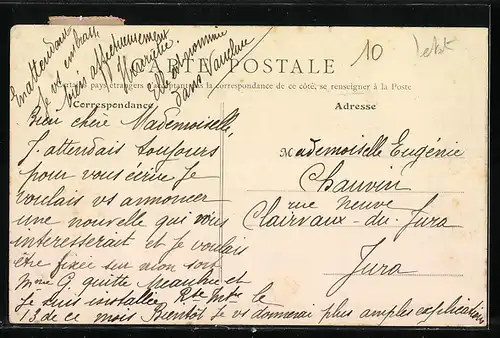 En attendant
je vs embrasse
bien affectueusement
Elle est nommée
dans Vaucluse
10
CARTE POSTALE
pays étrangers acceptant pas la correspondance de ce côté, se renseigner à la Poste
Correspondance
Adresse
Bien chère Mademoiselle,
J'attendais toujours
pour vous écrire Je
voulais vs annoncer
une nouvelle qui vous
interesserait et Je voulais
être fixée sur mon sort
Mme G. quitte et
Je suis installée le
13 de ce mois Bientôt Je vs donnerai plus amples explications
Mademoiselle Eugénie
Chauvin
rue Neuve
Clairvaux-du-Jura
Jura